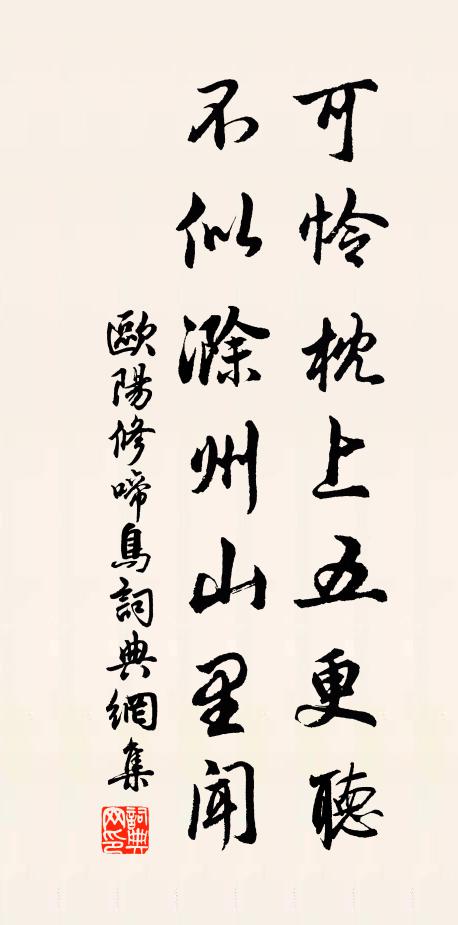 可怜枕上五更聽
不似滁州山里聞
歐陽修啼鳥詞典網集
詞典網印